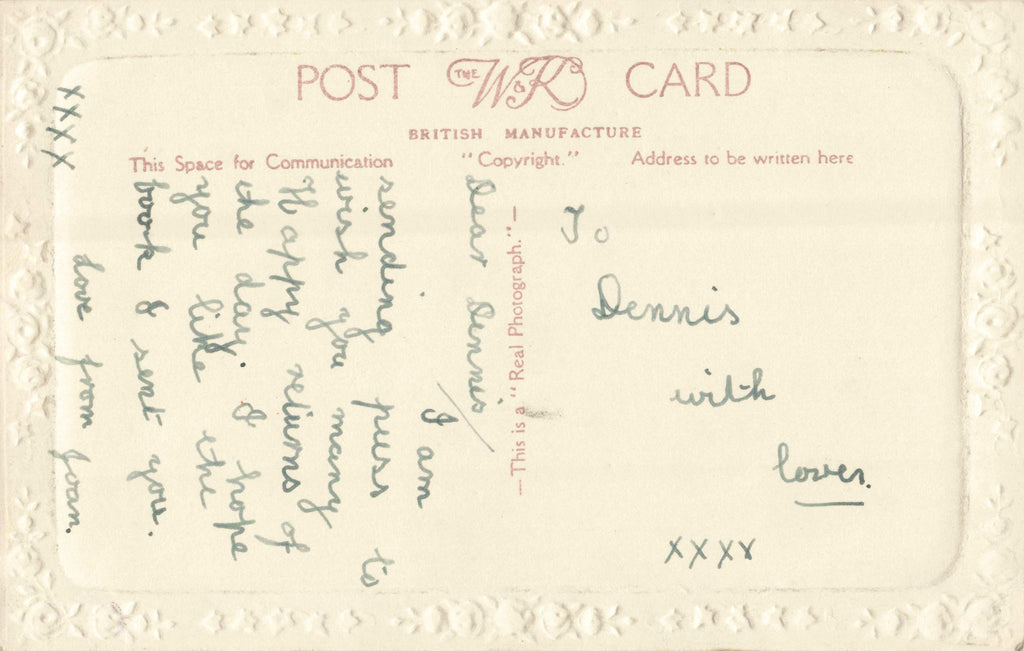 POST THE W&K CARD
BRITISH MANUFACTURE
This Space for Communication
"Copyright."
Address to be written here
—This is a "Real Photograph."—
Dear Dennis
I am
sending puss to
wish you many
Happy returns of
the day. I hope
you like the
book I sent you.
Love from Joan.
xxxx
To
Dennis
with
love.
xxxx